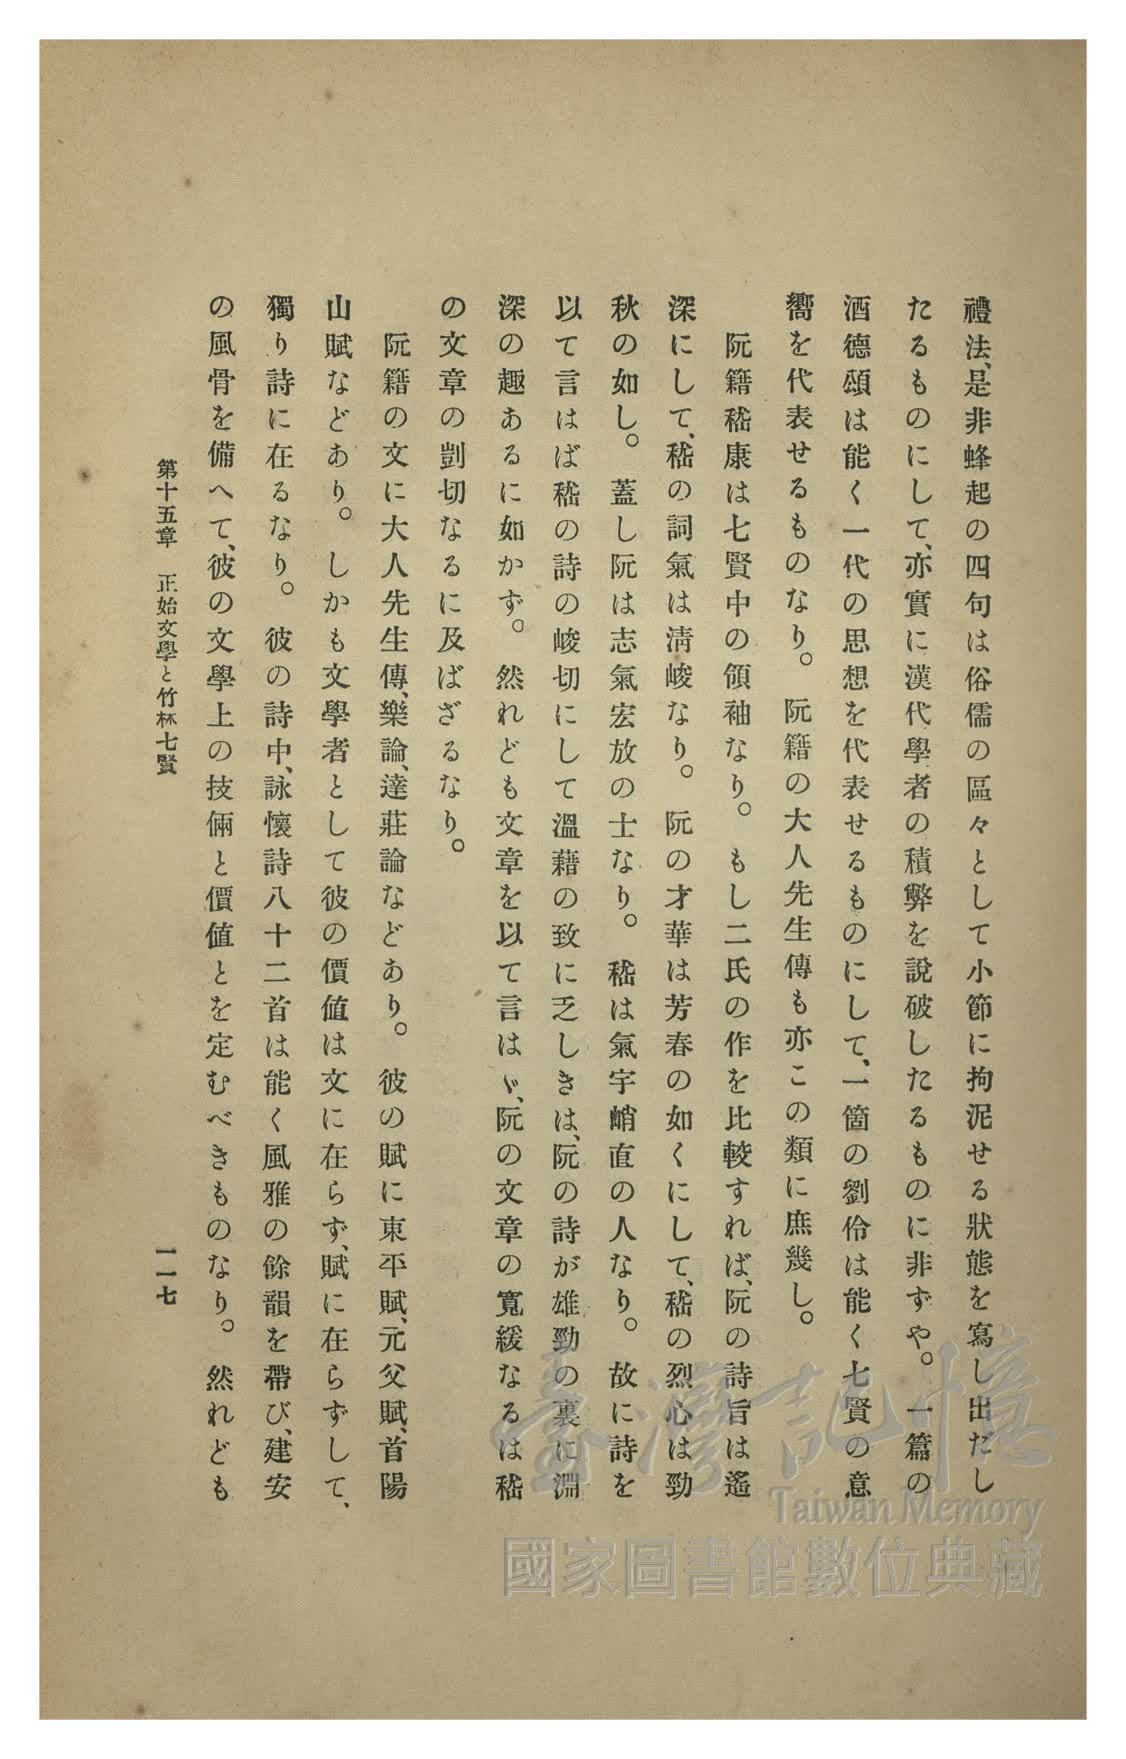 禮法、是非蜂起の四句は俗儒の區々として小節に拘泥せる狀態を寫し出だし
たるものにして、亦實に漢代學者の積弊を說破したるものに非ずや。一篇の
酒德頌は能く一代の思想を代表せるものにして、一箇の劉伶は能く七賢の意
嚮を代表せるものなり。阮籍の大人先生傳も亦この類に庶幾し。
阮籍嵇康は七賢中の領袖なり。もし二氏の作を比較すれば、阮の詩旨は遙
深にして、嵇の詞氣は淸峻なり。阮の才華は芳春の如くにして、嵇の烈心は勁
秋の如し。蓋し阮は志氣宏放の士なり。嵇は氣宇峭直の人なり。故に詩を
以て言はば嵇の詩の峻切にして溫藉の致に乏しきは、阮の詩が雄勁の裏に淵
深の趣あるに如かず。然れども文章を以て言はゞ、阮の文章の寬緩なるは嵇
の文章の剴切なるに及ばざるなり。
阮籍の文に大人先生傳、樂論、達莊論などあり。彼の賦に東平賦、元父賦、首陽
山賦などあり。しかも文學者として彼の價値は文に在らず、賦に在らずして、
獨り詩に在るなり。彼の詩中、詠懷詩八十二首は能く風雅の餘韻を帶び、建安
の風骨を備へて、彼の文學上の技倆と價値とを定むべきものなり。然れども
第十五章 正始文學と竹林七賢
一一七
臺灣記憶
Taiwan Memory
國家圖書館數位典藏